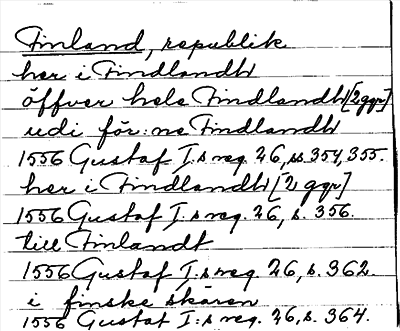 Finland, republik
her i Findlandh
öffver hele Findlandh [2 ggr]
udi för:ne Findlandh
1556 Gustaf I:s reg. 26, ss. 354, 355.
her i Findlandh [2 ggr]
1556 Gustaf I:s reg. 26, s. 356.
till Finlandt
1556 Gustaf I:s reg. 26, s. 362.
i finske skären
1556 Gustaf I:s reg. 26, s. 364.